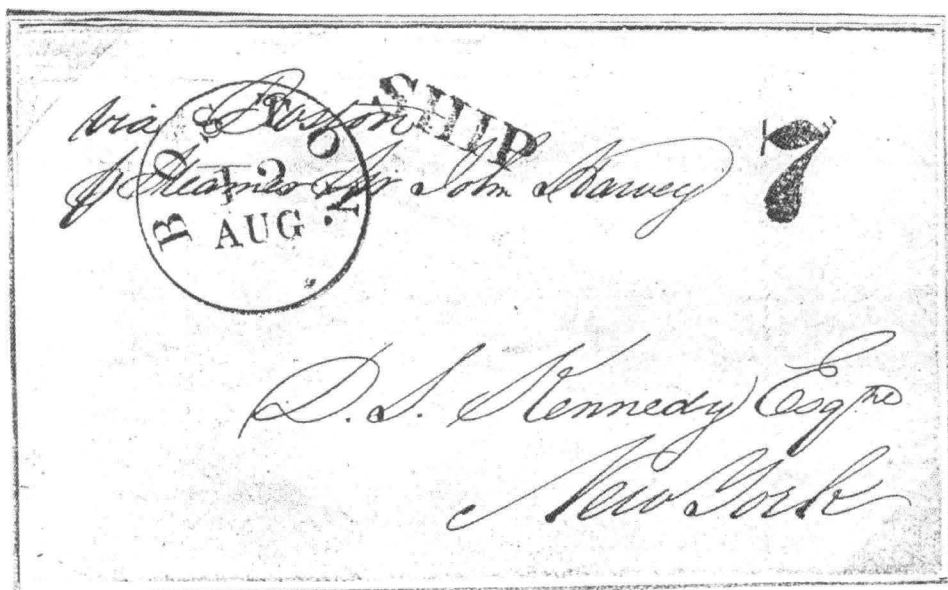 via Boston
p Steamer Sir John Harvey
BOSTON
12
AUG
SHIP
7
D. S. Kennedy Esqre
New York